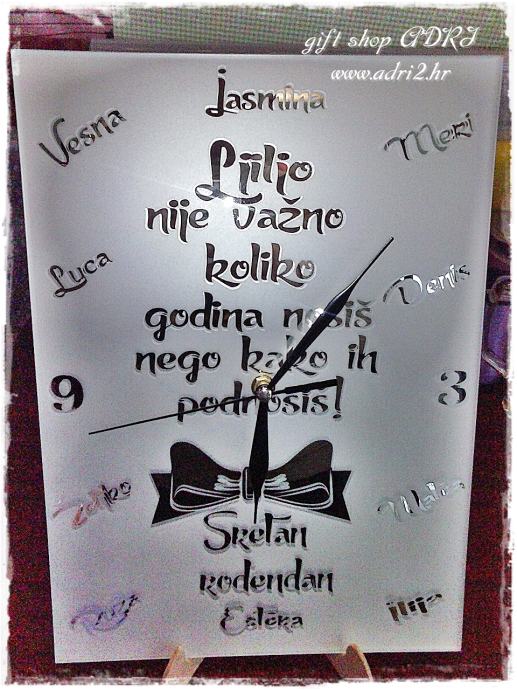 gift shop ADRI
www.adri2.hr
Jasmina
Vesna
Meri
Ljiljo
nije važno
koliko
Luca
Denis
godina nosiš
nego kako ih
9
3
podnosiš!
Željko
Sretan
rođendan
Estera
Ilija